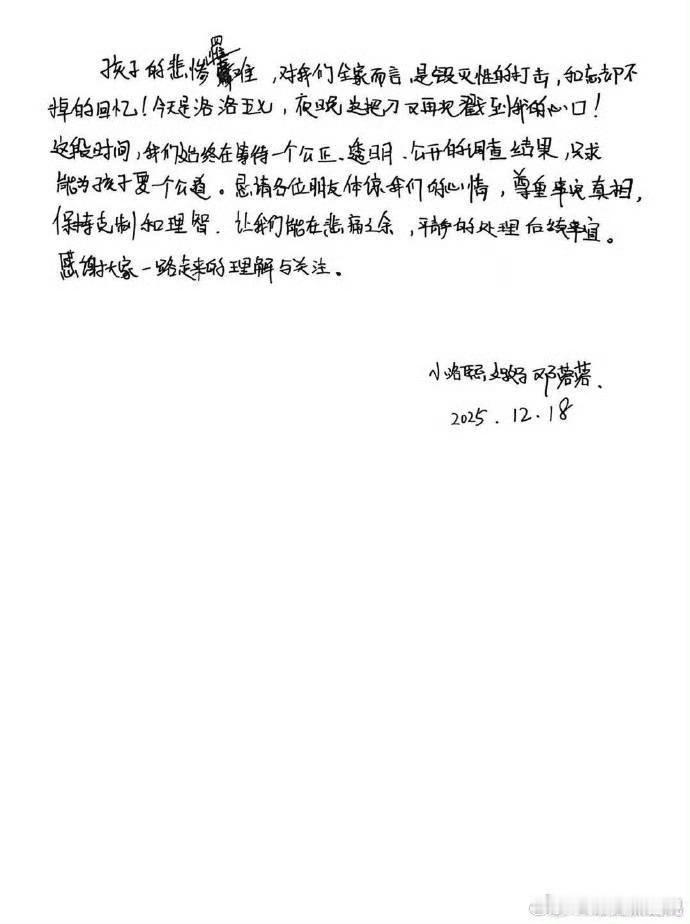 孩子的悲惨罹难，对我们全家而言，是毁灭性的打击，和忘却不
掉的回忆！今天是洛洛五七，夜晚这把刀又再次戳到我的心口！
这段时间，我们始终在等待一个公正、透明、公开的调查结果，只求
能为孩子要一个公道。恳请各位朋友体恤我们的心情，尊重事实真相，
保持克制和理智，让我们能在悲痛之余，平静的处理后续事宜。
感谢大家一路走来的理解与关注。
小洛熙妈妈邓蓉蓉.
2025.12.18